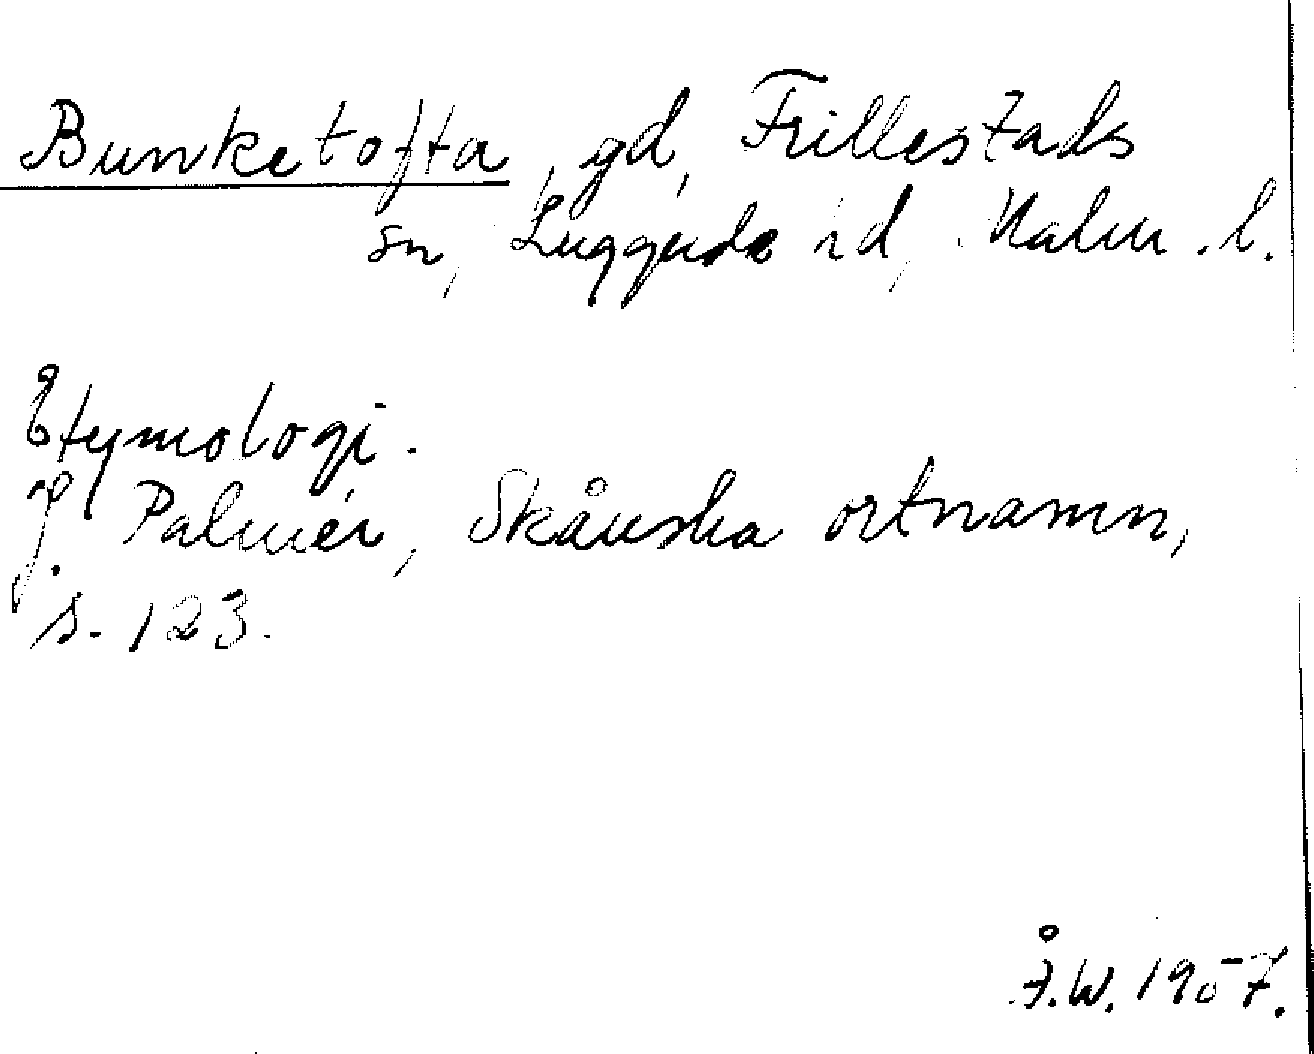 Bunketofta, gd, Fillestads
sn, Luggude hd, Malm. l.
Etymologi.
J. Palmér, Skånska ortnamn,
s. 123.
Å.W. 1957.